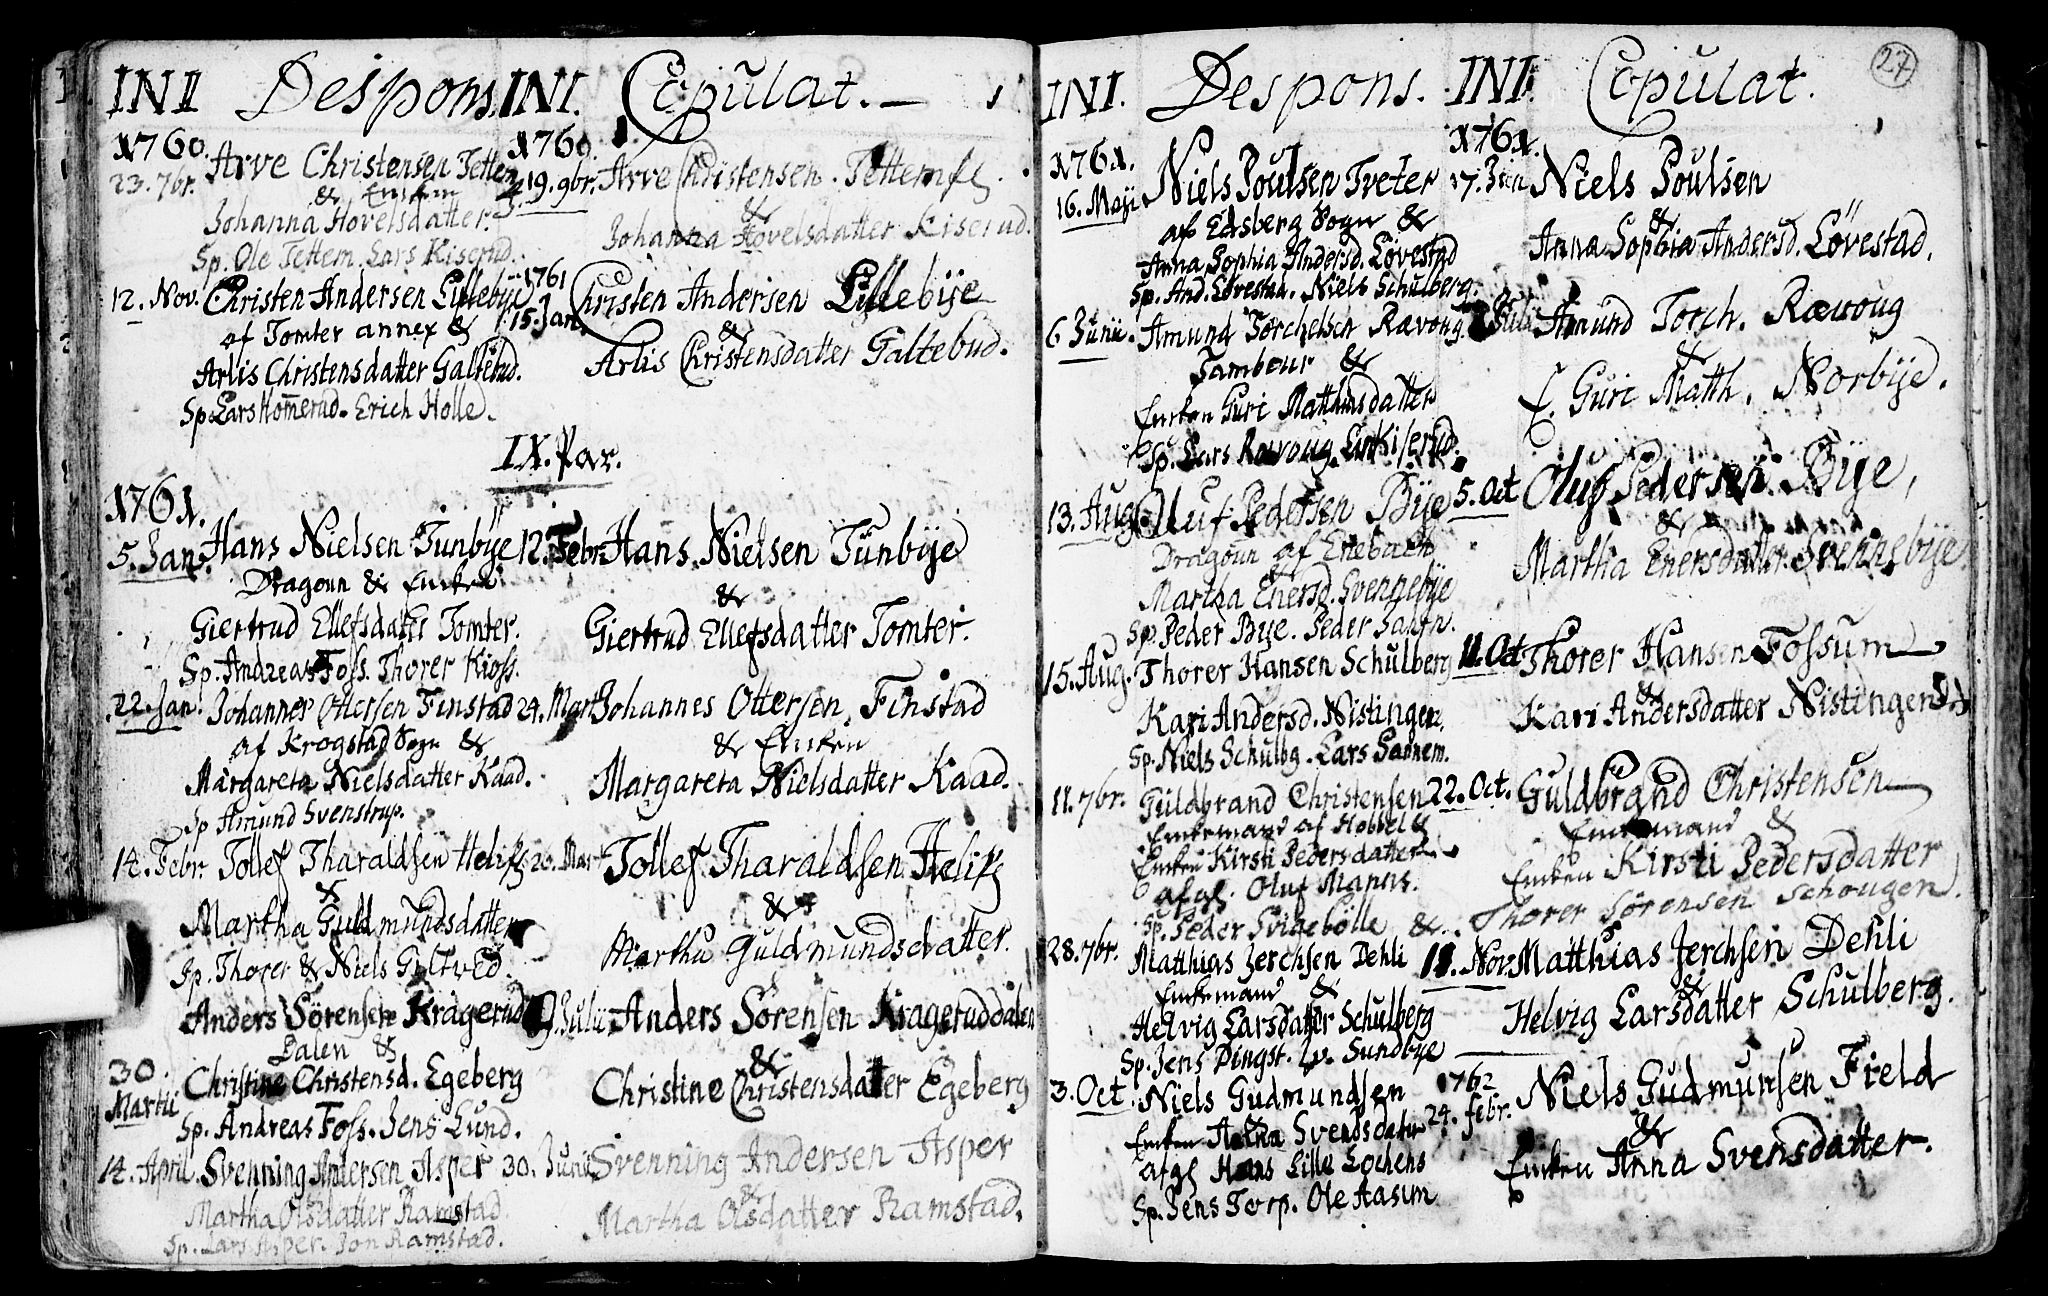 INI Despons.
1760.
23. 7br. Arve Christensen Tettem
& Enken
Johanna Hovelsdatter.
Sp. Ole Tettem. Lars Kiserud.
12. Nov. Christen Andersen Lillebÿe
af Tomter annex &
Arlis Christensdatter Galtebud.
Sp. Lars Homerud. Erich Holle.
INI. Copulat.
1760.
19. 9br. Arve Christensen Tettem
&
Johanna Hovelsdatter Kiserud.
1761
15. Jan. Christen Andersen Lillebÿe
&
Arlis Christensdatter Galtebud.
IX. Par.
1761.
5. Jan. Hans Nielsen Tunbÿe
Dragoun & Enken
Giertrud Ellefsdatter Tomter.
Sp. Andreas Foss. Thorer Kioss.
22. Jan. Johannes Ottersen Finstad
af Krogstad Sogn &
Margareta Nielsdatter Kaad.
Sp Amund Svenstrup.
14. Febr. Tollef Tharaldsen
&
Martha Guldmundsdatter
Sp. Thorer & Niels Gultved.
Anders Sörensen Kragerud
Dalen &
30. Martii Christine Christensd. Egeberg
Sp. Andreas Foss. Jens Lund.
14. April. Svenning Andersen Asper
Martha Olsdatter Ramstad.
Sp. Lars Asper. Jon Ramstad.
12. Febr. Hans Nielsen Tünbÿe
&
Giertrud Ellefsdatter Tomter.
24. Mart Johannes Ottersen Finstad
& Enken
Margareta Nielsdatter Kaad.
26. Mart Tollef Tharaldsen
&
Martha Guldmundsdatter.
9. Julii Anders Sörensen Krageruddalen
&
Christine Christensdatter Egeberg
30. Junii Svenning Andersen Asper
&
Martha Olsdatter Ramstad.
27
INI. Despons.
1761.
16. Maji Niels Poulsen Tveter
af Edsberg Sogn &
Anna Sophia Andersd. Lövestad
Sp. And. Lövestad. Niels Schulberg.
6 Junii. Amund Torchelsen Rævoug
Tambour &
Enken Guri Matthiasdatter
Sp. Lars Rævoug. Kiserud.
13. Aug. Oluf Pedersen Bÿe
Dragoun af Enebach
Martha Enersd. Svennebÿe
Sp. Peder Bye. Peder
15. Aug. Thorer Hansen Schulberg
Kari Andersd. Nistingen.
Sp. Niels Schulbg. Lars Sannem.
11. 7br. Guldbrand Christensen
Enkemand af Hobbel &
Enken Kirsti Pedersdatter
afgl. Oluf
Sp. Peder Svigebölle & Thorer Sörensen Schougen.
28. 7br. Matthias Jerchsen Dehli
Enkemand &
Helvig Larsdatter Schulberg
Sp. Jens Dingst. Sundbÿe
3. Oct. Niels Gudmundsen
&
Enken Anna Svendsdatter
afgl Hans Lille Lochens
Sp. Jens Torp. Ole Aasum
INI. Copulat.
1761.
17. Jun Niels Poulsen
&
Anna Sophia Andersd. Lövestad.
Amund Torch. Rævoug
&
E. Guri Matth. Norbÿe.
5. Oct Oluf Pedersen Bÿe,
&
Martha Enersdatter Svennebÿe.
11. Oct Thorer Hansen Fossum
&
Kari Andersdatter Nistingen
22. Oct. Guldbrand Christensen
Enkemand &
Enken Kirsti Pedersdatter
11. Nov. Matthias Jerchsen Dehli
&
Helvig Larsdatter Schulberg.
1762
24. febr. Niels Gudmunsen Field
&
Enken Anna Svensdatter.